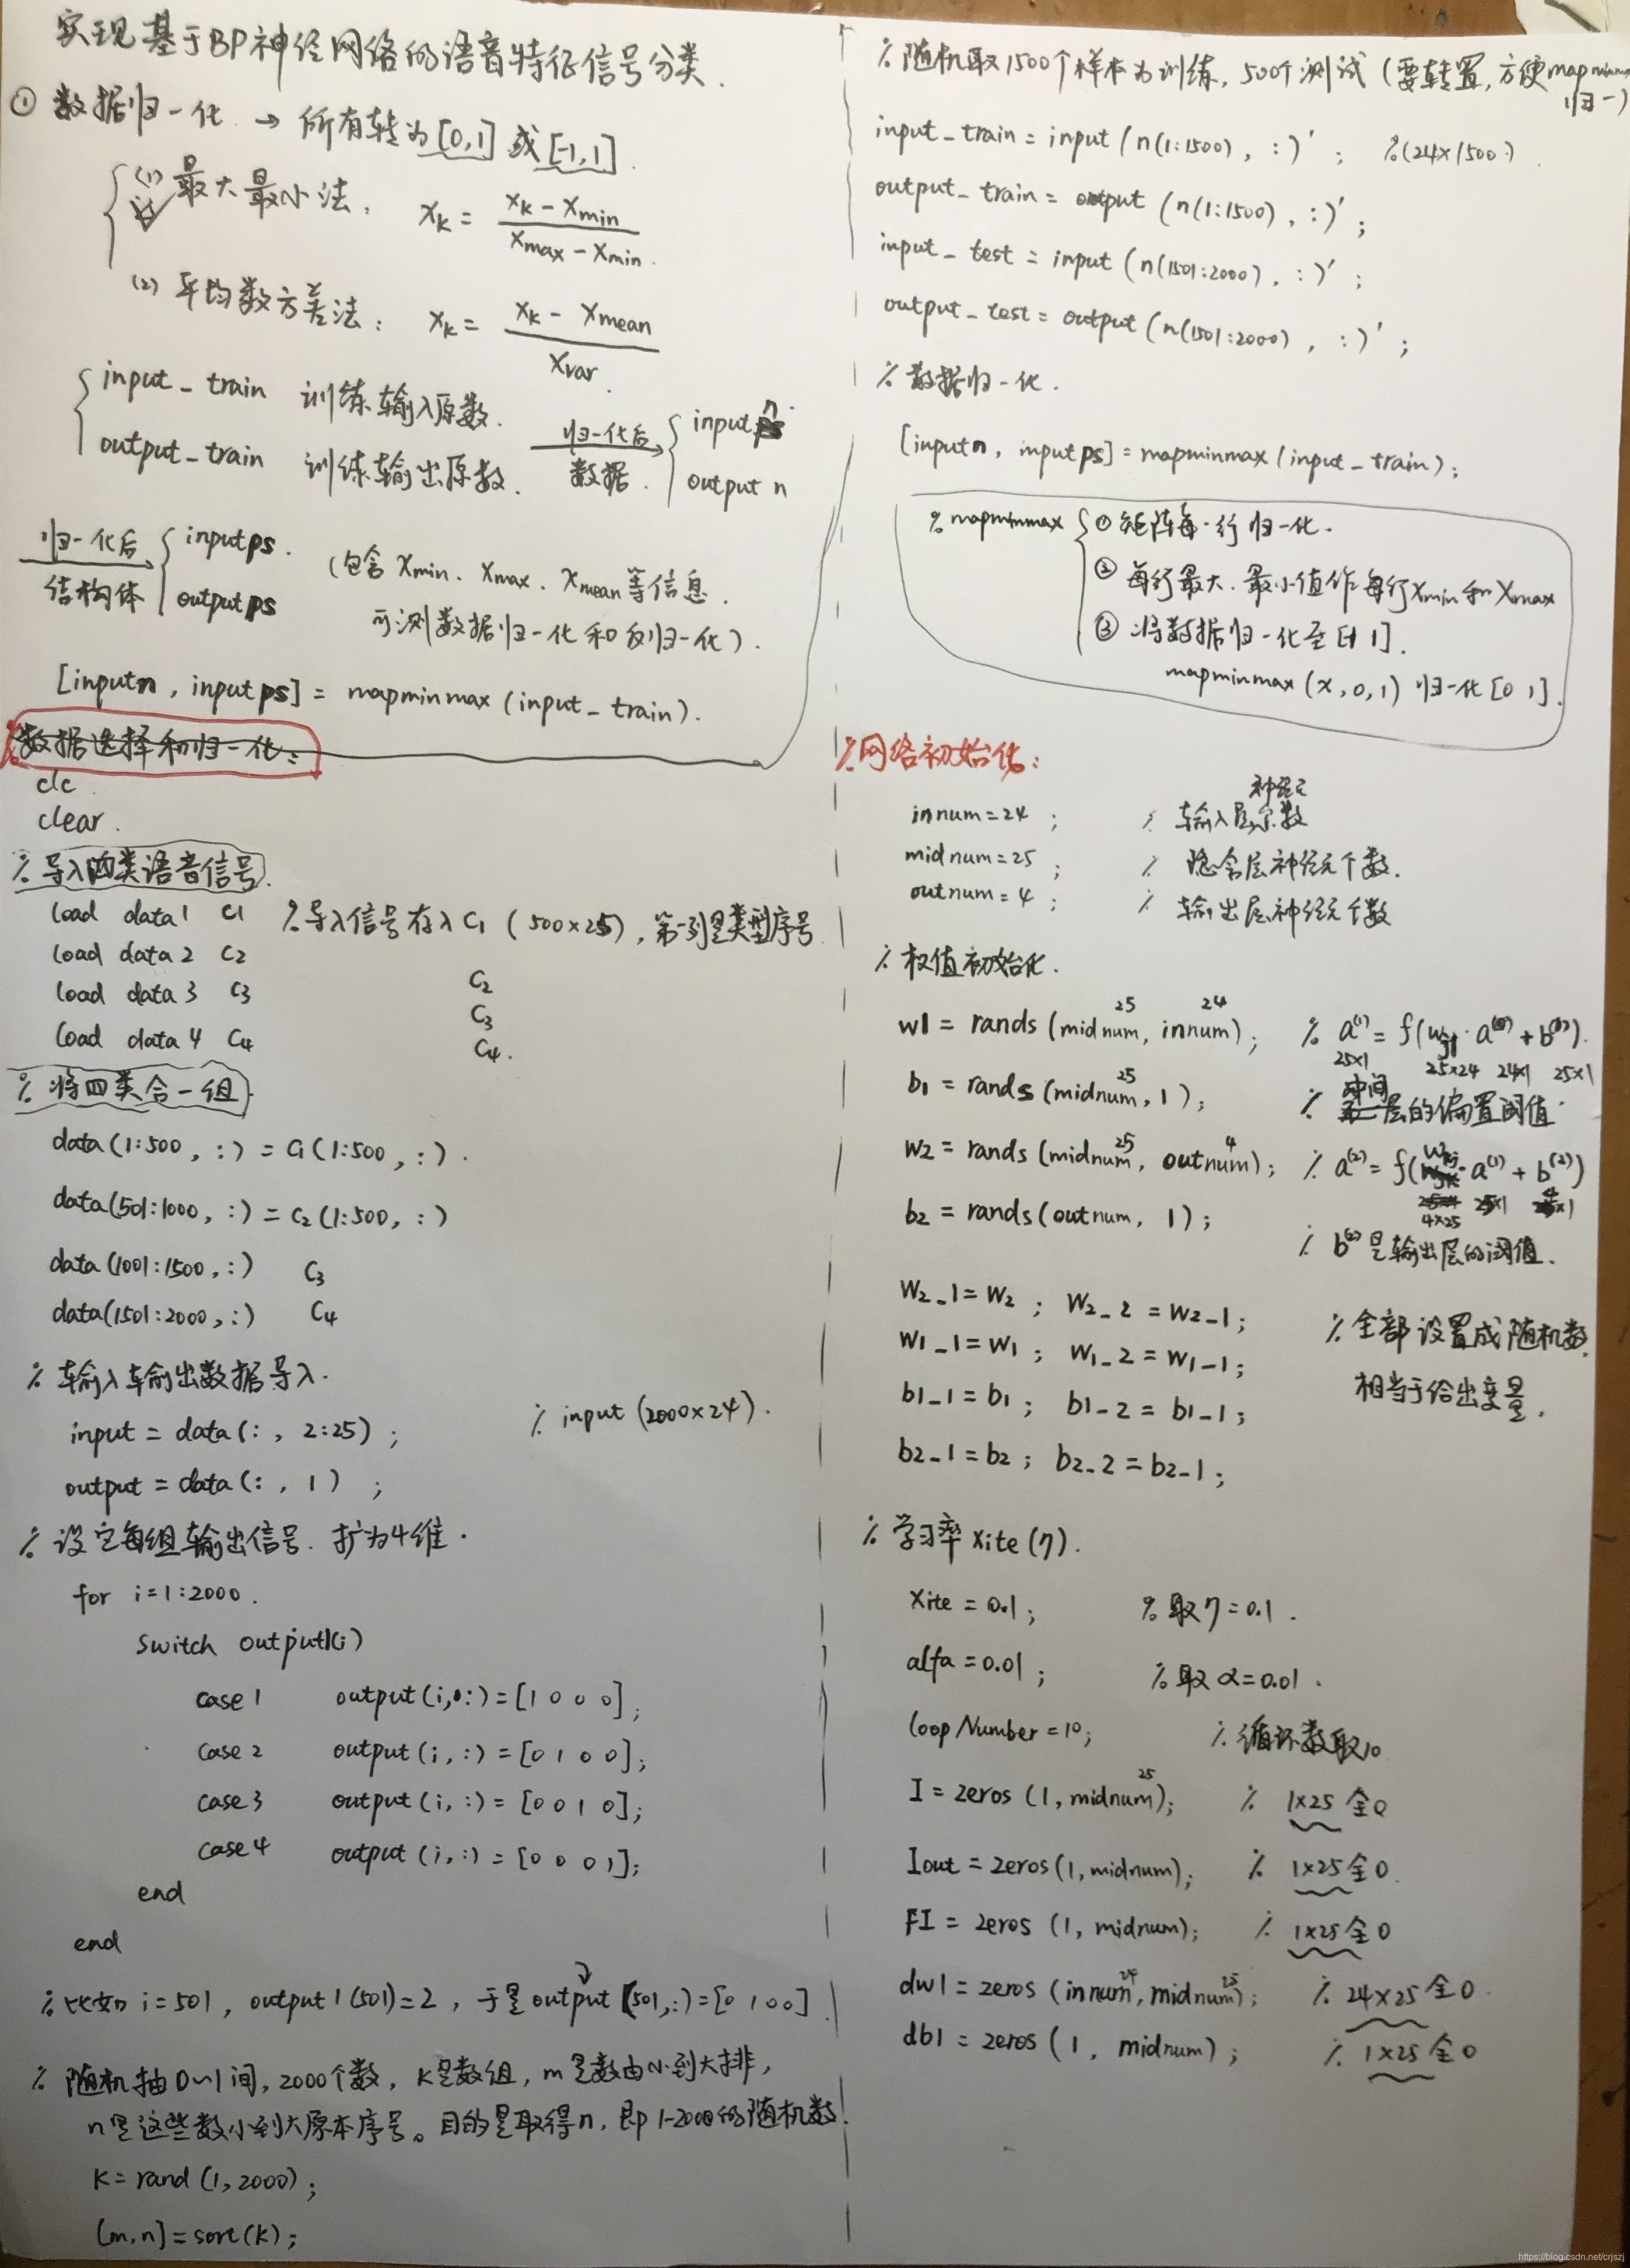 实现基于BP神经网络的语音特征信号分类.
① 数据归一化 → 所有转为[0,1] 或[-1,1].
(1) 最大最小法: xk = (xk - xmin) / (xmax - xmin).
(2) 平均数方差法: xk = (xk - xmean) / xvar.
input_train 训练输入原数.
output_train 训练输出原数.
归一化后数据. input n
output n
归一化后结构体 inputps.
outputps
(包含 xmin. xmax. xmean等信息.
可测数据归一化和反归一化).
[inputn, inputps] = mapminmax (input_train).
%数据选择和归一化:
clc
clear.
% 导入四类语音信号.
load data1 c1 %导入信号存入C1 (500×25), 第一列是类型序号
load data2 c2 C2
load data3 c3 C3
load data4 c4 C4.
% 将四类合一组.
data(1:500, :) = C1(1:500, :).
data(501:1000, :) = C2(1:500, :)
data(1001:1500, :) C3
data(1501:2000, :) C4
% 输入输出数据导入.
input = data(:, 2:25); % input (2000×24).
output = data(:, 1);
% 设定每组输出信号. 扩为4维.
for i=1:2000.
switch output1(i)
case 1 output(i,:)=[1 0 0 0];
case 2 output(i,:)=[0 1 0 0];
case 3 output(i,:)=[0 0 1 0];
case 4 output(i,:)=[0 0 0 1];
end
end
% 比如 i=501, output1(501)=2, 于是output(501,:)=[0 1 0 0].
% 随机抽0~1间, 2000个数, k是数组, m是数由小到大排,
n是这些数小到大原本序号。目的是取得n, 即1-2000的随机数.
k=rand(1,2000);
[m,n]=sort(k);
% 随机取1500个样本为训练, 500个测试 (要转置, 方便mapminmax
归一)
input_train = input(n(1:1500), :)'; %(24×1500)
output_train = output(n(1:1500), :)';
input_test = input(n(1501:2000), :)';
output_test = output(n(1501:2000), :)';
% 数据归一化.
[inputn, inputps]=mapminmax(input_train);
% mapminmax ① 矩阵每一行归一化.
② 每行最大. 最小值作每行xmin和xmax
③ 将数据归一化至[-1 1].
mapminmax(x,0,1) 归一化[0 1].
%网络初始化:
innum=24; % 输入层神经元个数
midnum=25; % 隐含层神经元个数.
outnum=4; % 输出层神经元个数
% 权值初始化.
25 24
w1 = rands(midnum, innum); % a(1) = f(wj1·a(0) + b(1)).
25×1 25×24 24×1 25×1
25
b1 = rands(midnum, 1); % 中间层的偏置阈值.
25 4
w2 = rands(midnum, outnum); % a(2) = f(wkj·a(1) + b(2))
4×25 25×1 4×1
b2 = rands(outnum, 1);
% b(2)是输出层的阈值.
w2_1=w2; w2_2=w2_1; % 全部设置成随机数.
w1_1=w1; w1_2=w1_1;
相当于给出变量.
b1_1=b1; b1_2=b1_1;
b2_1=b2; b2_2=b2_1;
% 学习率 xite(η).
xite=0.1; % 取η=0.1.
alfa=0.01; % 取α=0.01.
loopNumber=10; % 循环数取10
25
I=zeros(1,midnum); % 1×25 全0
Iout=zeros(1,midnum); % 1×25 全0.
FI=zeros(1,midnum); % 1×25 全0
24 25
dw1=zeros(innum,midnum); % 24×25 全0.
db1=zeros(1, midnum); % 1×25 全0
https://blog.csdn.net/crjszj